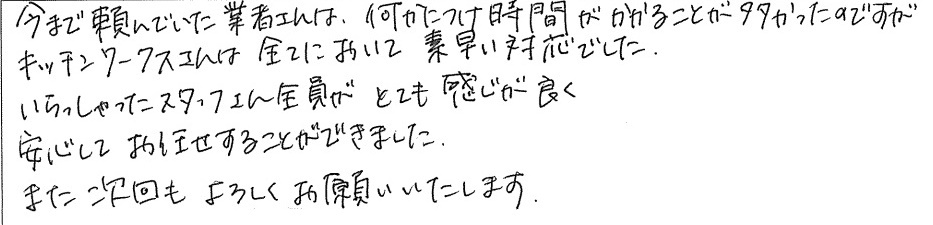 今まで頼んでいた業者さんは、何かにつけ時間がかかることが多かったのですが
キッチンワークスさんは全てにおいて素早い対応でした.
いらっしゃったスタッフさん全員がとても感じが良く
安心してお任せすることができました.
また次回もよろしくお願いいたします.